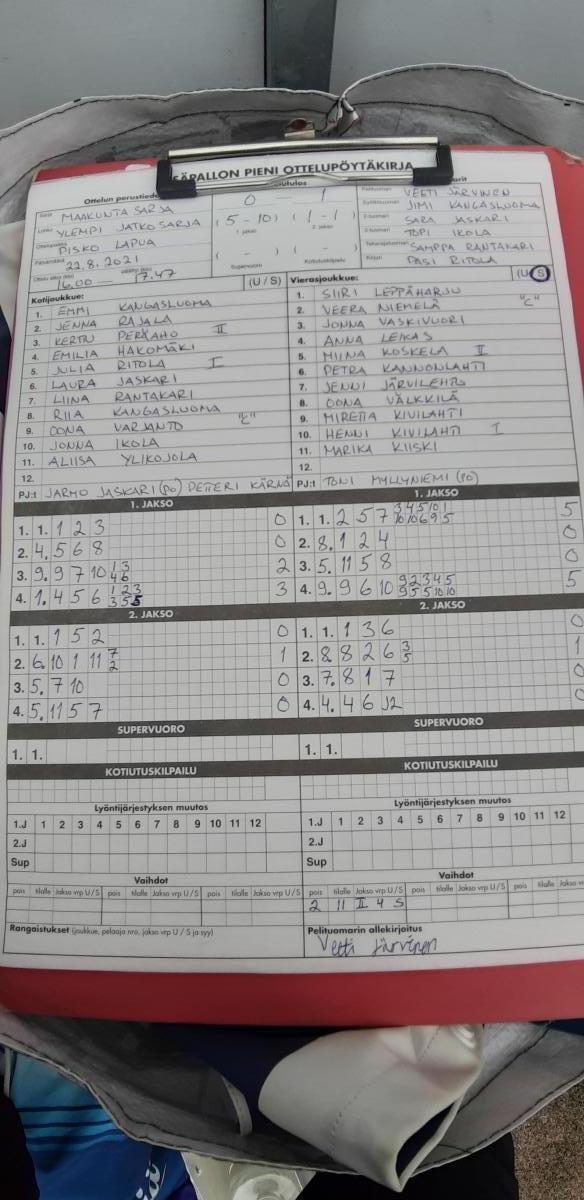 SÄPALLON PIENI OTTELUPÖYTÄKIRJA
Ottelun perustiedo
MAAKUNTA SARJA
YLEMPI JATKOSARJA
PISKO LAPUA
Päivämäärä 22.8.2021
16.00 — 17.47
0 — 1
(5-10) (1-1)
1. jakso 2. jakso
( - ) ( - )
Supervuoro Kotiutuskilpailu
Pelituomari VEETI JÄRVINEN
Syöttötuomari JIMI KANGASLUOMA
SARA JASKARI
TOPI IKOLA
Takarajatuomari SAMPPA RANTAKARI
Kirjuri PASI RITOLA
Kotijoukkue: (U / S)
1. EMMI KANGASLUOMA
2. JENNA RAJALA
3. KERTTU PERÄAHO II
4. EMILIA HAKOMÄKI
5. JULIA RITOLA I
6. LAURA JASKARI
7. LIINA RANTAKARI
8. RIIA KANGASLUOMA
9. OONA VARJANTO "C"
10. JONNA IKOLA
11. ALIISA YLIKOJOLA
12.
PJ:t JARMO JASKARI (PO) PETTERI KÄRNÄ
Vierasjoukkue: (U / S)
1. SIIRI LEPPÄHARJU
2. VEERA NIEMELÄ "C"
3. JONNA VASKIVUORI
4. ANNA LEIKAS
5. MIINA KOSKELA II
6. PETRA KANNONLAHTI
7. JENNI JÄRVILEHTO
8. OONA VÄLKKILÄ
9. MIRETTA KIVILAHTI
10. HENNI KIVILAHTI I
11. MARIKA KIISKI
12.
PJ:t TONI MYLLYNIEMI (PO)
1. JAKSO
1. 1. 1 2 3 0
2. 4. 5 6 8 0
3. 9. 9 7 10 13 46 2
4. 1. 4 5 6 123 355 3
1. JAKSO
1. 1. 2 5 7 5
2. 8. 1 2 4 0
3. 5. 11 5 8 0
4. 9. 9 6 10 92345 9551010 5
2. JAKSO
1. 1. 1 5 2 0
2. 6. 10 1 11 7 2 1
3. 5. 7 10 0
4. 5. 11 5 7 0
2. JAKSO
1. 1. 1 3 6 0
2. 8. 8 2 6 3 5 1
3. 7. 8 1 7 0
4. 4. 4 6 12 0
SUPERVUORO
1. 1.
SUPERVUORO
1. 1.
KOTIUTUSKILPAILU
KOTIUTUSKILPAILU
Lyöntijärjestyksen muutos
1.J 1 2 3 4 5 6 7 8 9 10 11 12
2.J
Sup
Lyöntijärjestyksen muutos
1.J 1 2 3 4 5 6 7 8 9 10 11 12
2.J
Sup
Vaihdot
pois tilalle Jakso vrp U / S pois tilalle Jakso vrp U / S pois tilalle Jakso vrp U / S
Vaihdot
pois tilalle Jakso vrp U / S pois tilalle Jakso vrp U / S pois tilalle Jakso vr
2 11 II 4 S
Rangaistukset (joukkue, pelaaja nro, jakso vrp U / S ja syy)
Pelituomarin allekirjoitus
Veeti Järvinen